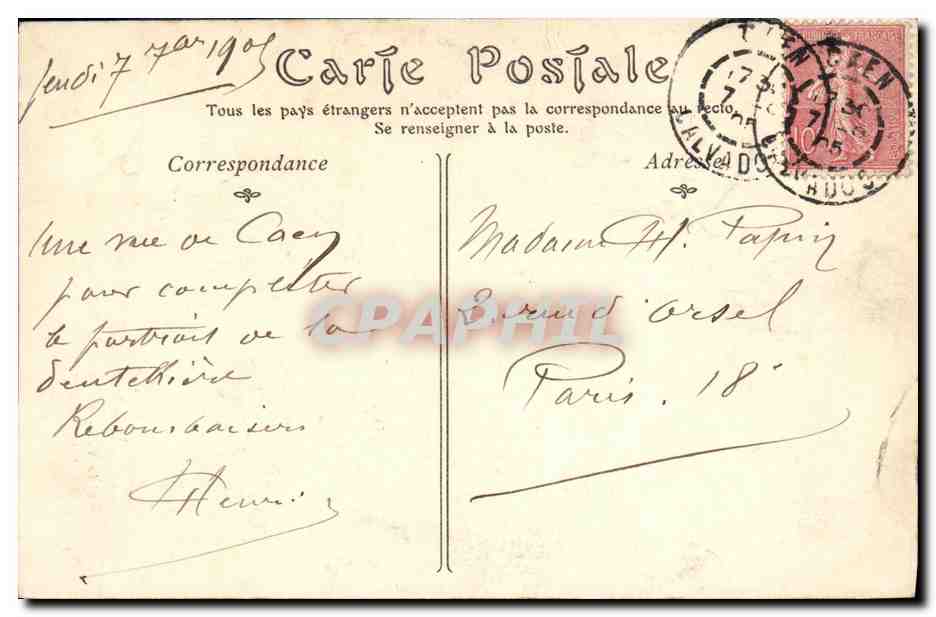 Jeudi 7 7bre 1905
Carte Postale
Tous les pays étrangers n'acceptent pas la correspondance au recto.
Se renseigner à la poste.
Correspondance
Une vue de Caen
pour completer
le portrait de la
dentellière
Rebonsbaisers
Henri
Adresse
Madame H. Papin
2 rue d'Orsel
Paris. 18e
CAEN
17 30
7
05
CALVADOS
CAEN
7
05
CALVADOS
10
CPAPHIL